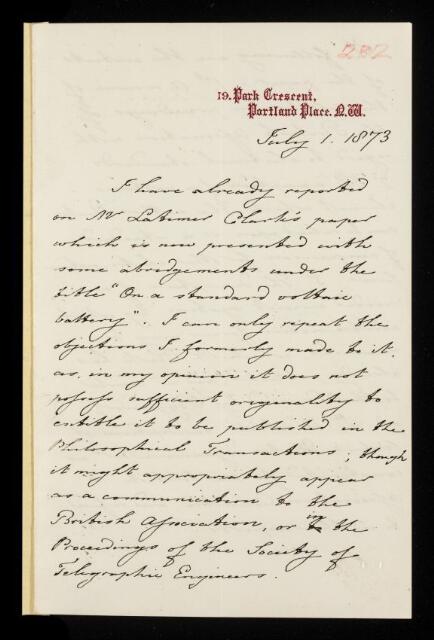 282
19. Park Crescent,
Portland Place. N.W.
July 1. 1873
I have already reported
on Mr Latimer Clark's paper
which is now presented with
some abridgements under the
title "On a standard voltaic
battery". I can only repeat the
objections I formerly made to it,
as, in my opinion it does not
possess sufficient originality to
entitle it to be published in the
Philosophical Transactions; though
it might appropriately appear
as a communication to the
British Association, or in the
Proceedings of the Society of
Telegraphic Engineers.